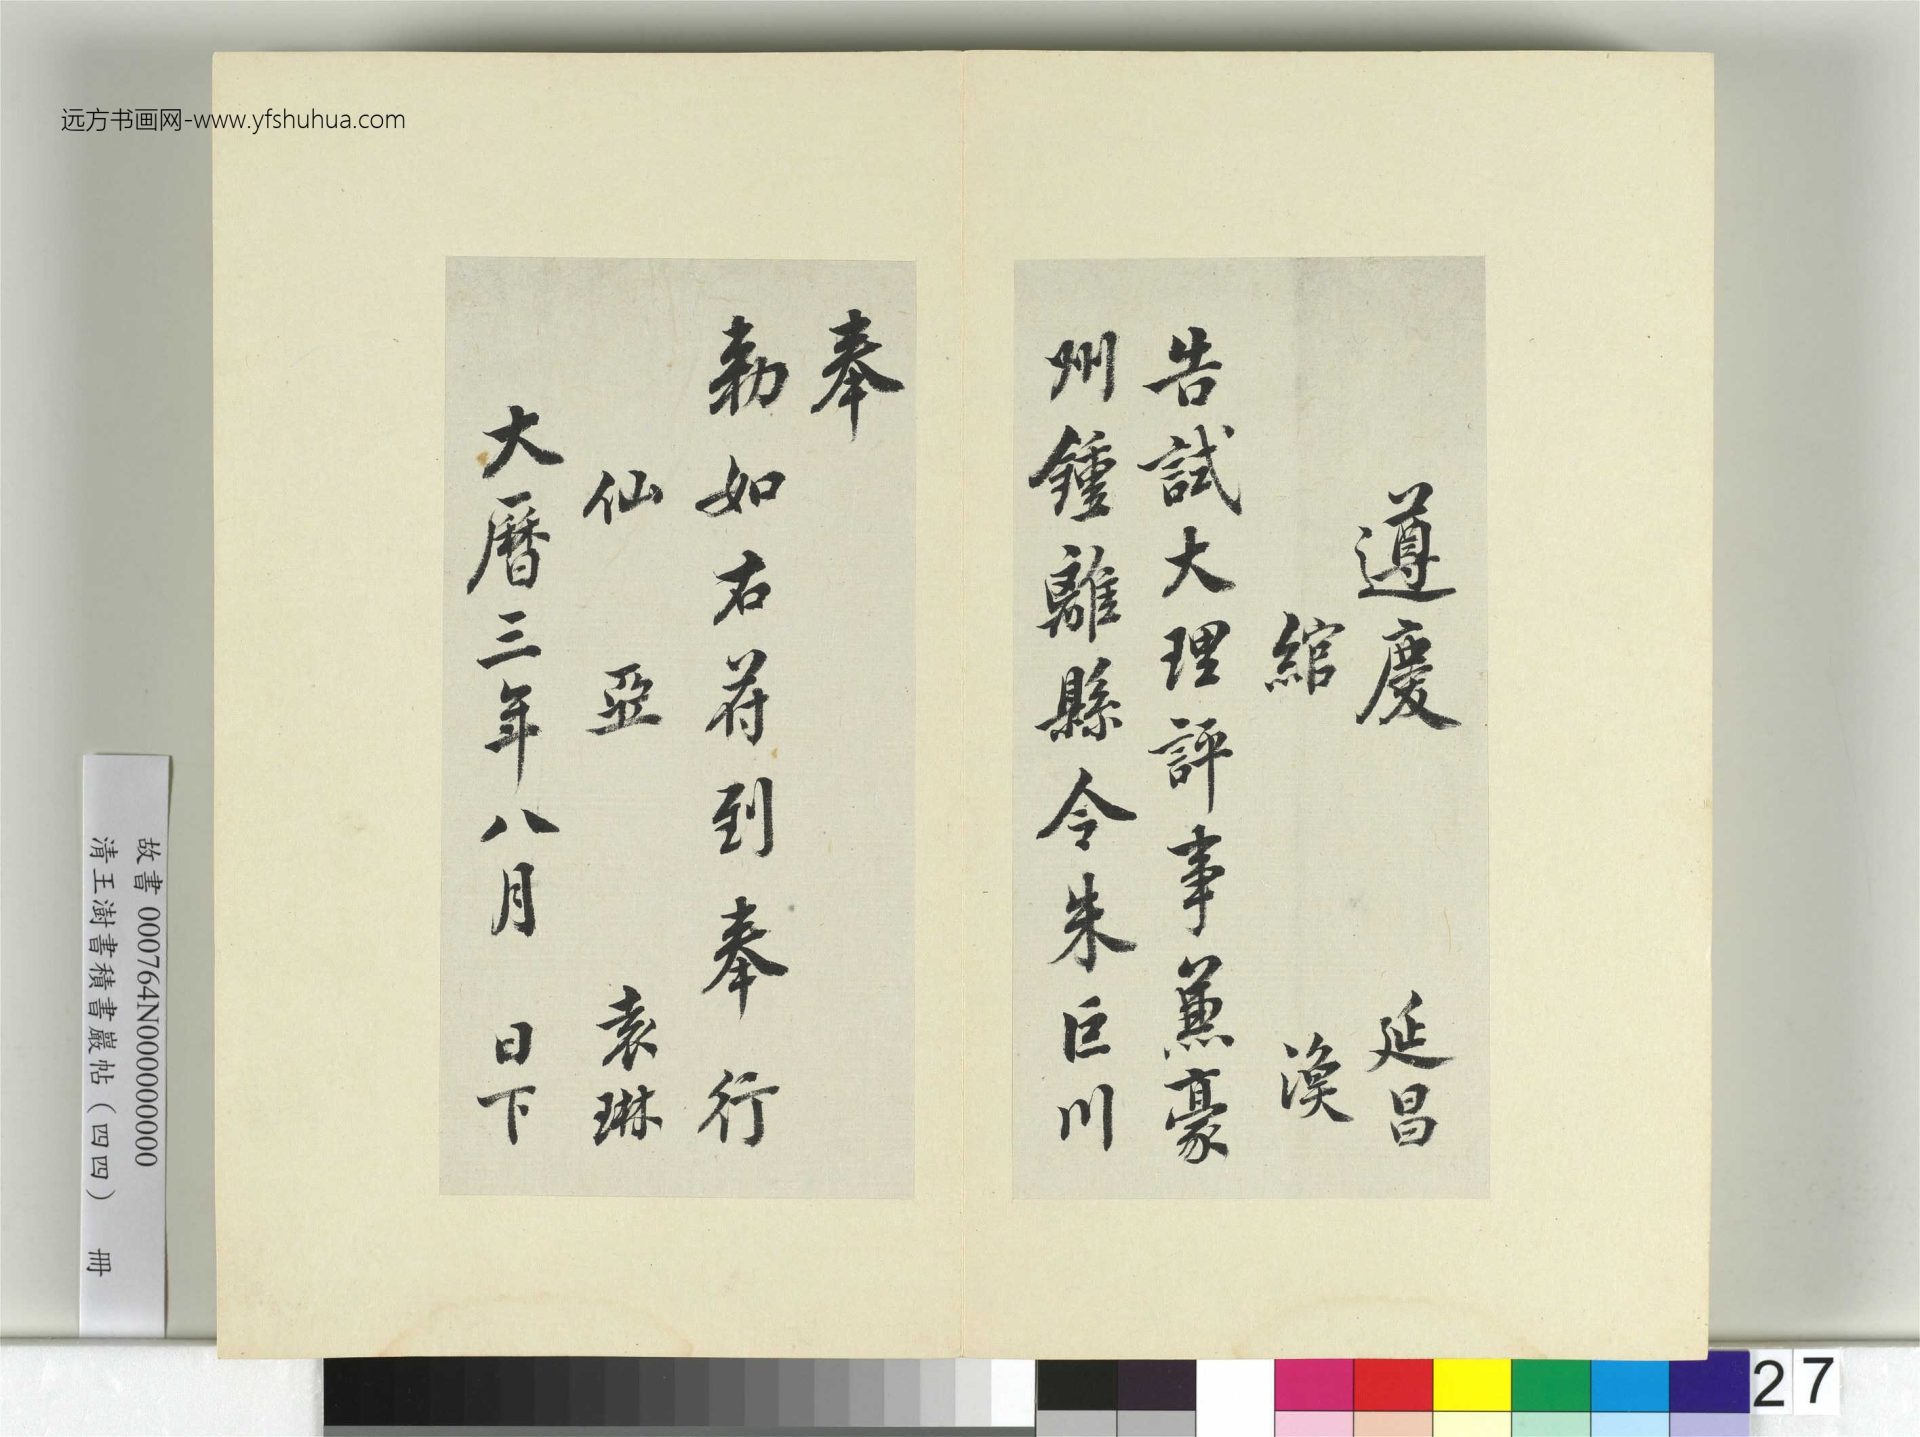 远方书画网-www.yfshuhua.com
遵慶 延昌
綰 渙
告試大理評事兼豪
州鍾離縣令朱巨川
奉
勅如右苻到奉行
仙 亞 袁琳
大曆三年八月 日下
故書 000764N000000000
清王澍書積書巖帖(四四) 冊
27